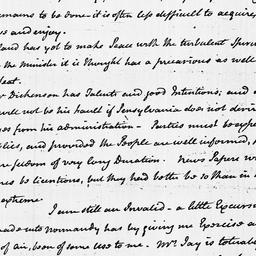 mains to be done it is often less difficult to acquire,
us and enjoy.
land has yet to make Peace with the turbulent Spirit
the minister it is thought has a precarious as well
Seat.
Dickenson has Talents and good Intentions; and
will not be his fault if Pensylvania does not deriv
ges from his administration - Parties must be expe
lics, and provided the People are well informed,
are seldom of very long Duration. News Papers w
res be licentious, but they had both be so than in
extreme.
I am still an Invalid - a little Excurs
made into normandy has by giving me Exercise a
of air, been of some use to me. Mrs. Jay is tolerab